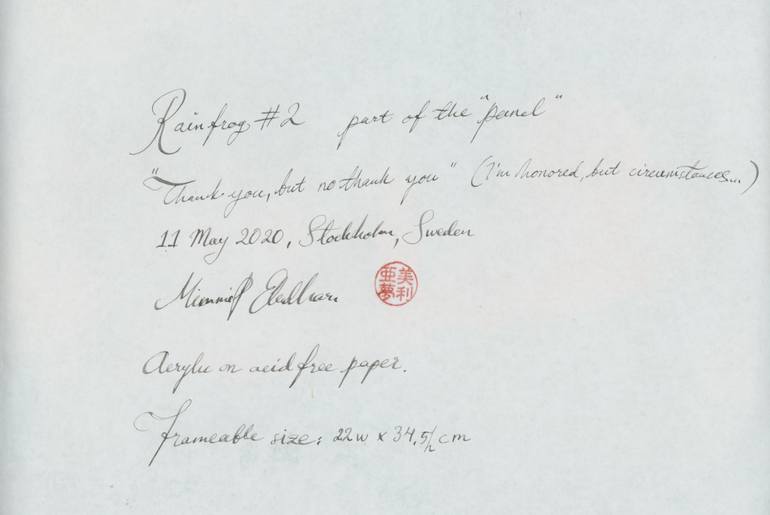 Rainfrog #2 part of the "panel"
"Thank you, but no thank you" (I'm honored, but circumstances...)
11 May 2020, Stockholm, Sweden
美利
亜夢
Acrylic on acid free paper.
Frameable size: 22w x 34,5h cm